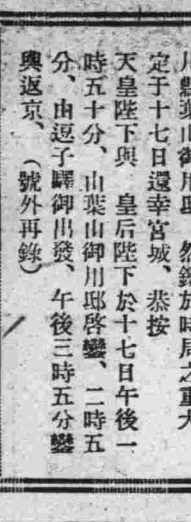 川縣葉山御用邸、然鑑於時局之重大
定于十七日還幸宮城、恭按
天皇陛下與　皇后陛下於十七日午後一
時五十分、由葉山御用邸啓鑾、二時五
分、由逗子驛御出發、午後三時五分鑾
輿返京、（號外再錄）